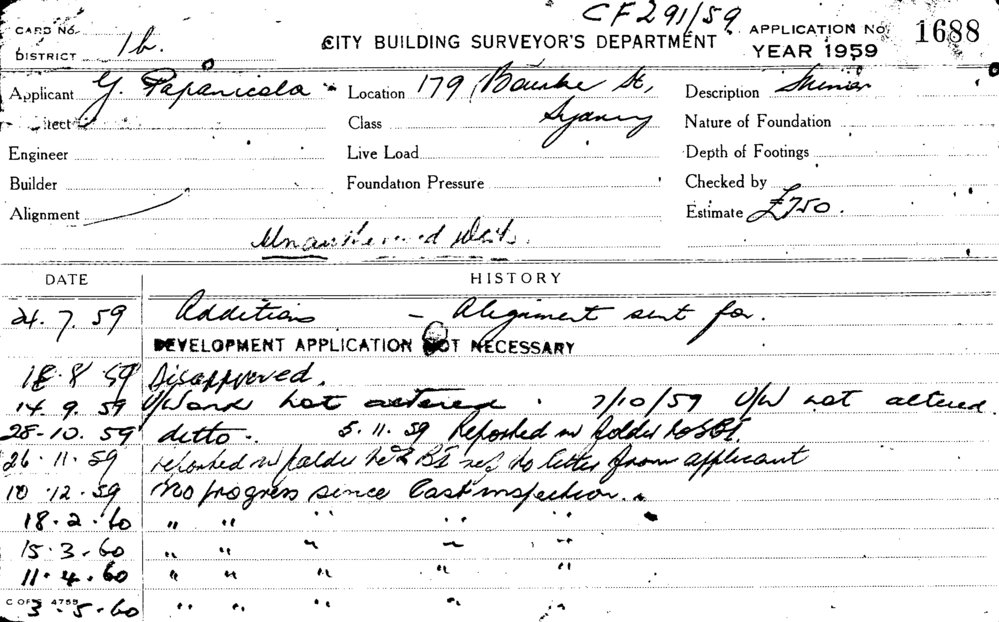 CF291/59
CARD No.
DISTRICT 1b.
CITY BUILDING SURVEYOR'S DEPARTMENT
APPLICATION No. 1688
YEAR 1959
Applicant G. Papanicola
Location 179 Bourke St,
Description
tect
Class Sydney
Nature of Foundation
Engineer
Live Load
Depth of Footings
Builder
Foundation Pressure
Checked by
Alignment
Estimate £750.
Unauthorised Work.
DATE HISTORY
21.7.59 Additions – Alignment sent for.
DEVELOPMENT APPLICATION NOT NECESSARY
18.8.59 Disapproved.
14.9.59 U/Work not altered. 7/10/59 U/W not altered.
28-10.59 ditto. 5.11.59 Reported in folder to SBI.
26.11.59 reported in folder to BI letter from applicant
10.12.59 No progress since last inspection.
18.2.60 " " " " "
15.3.60 " " " " "
11.4.60 " " " " "
C OF S 4755
3.5.60 " " " " "